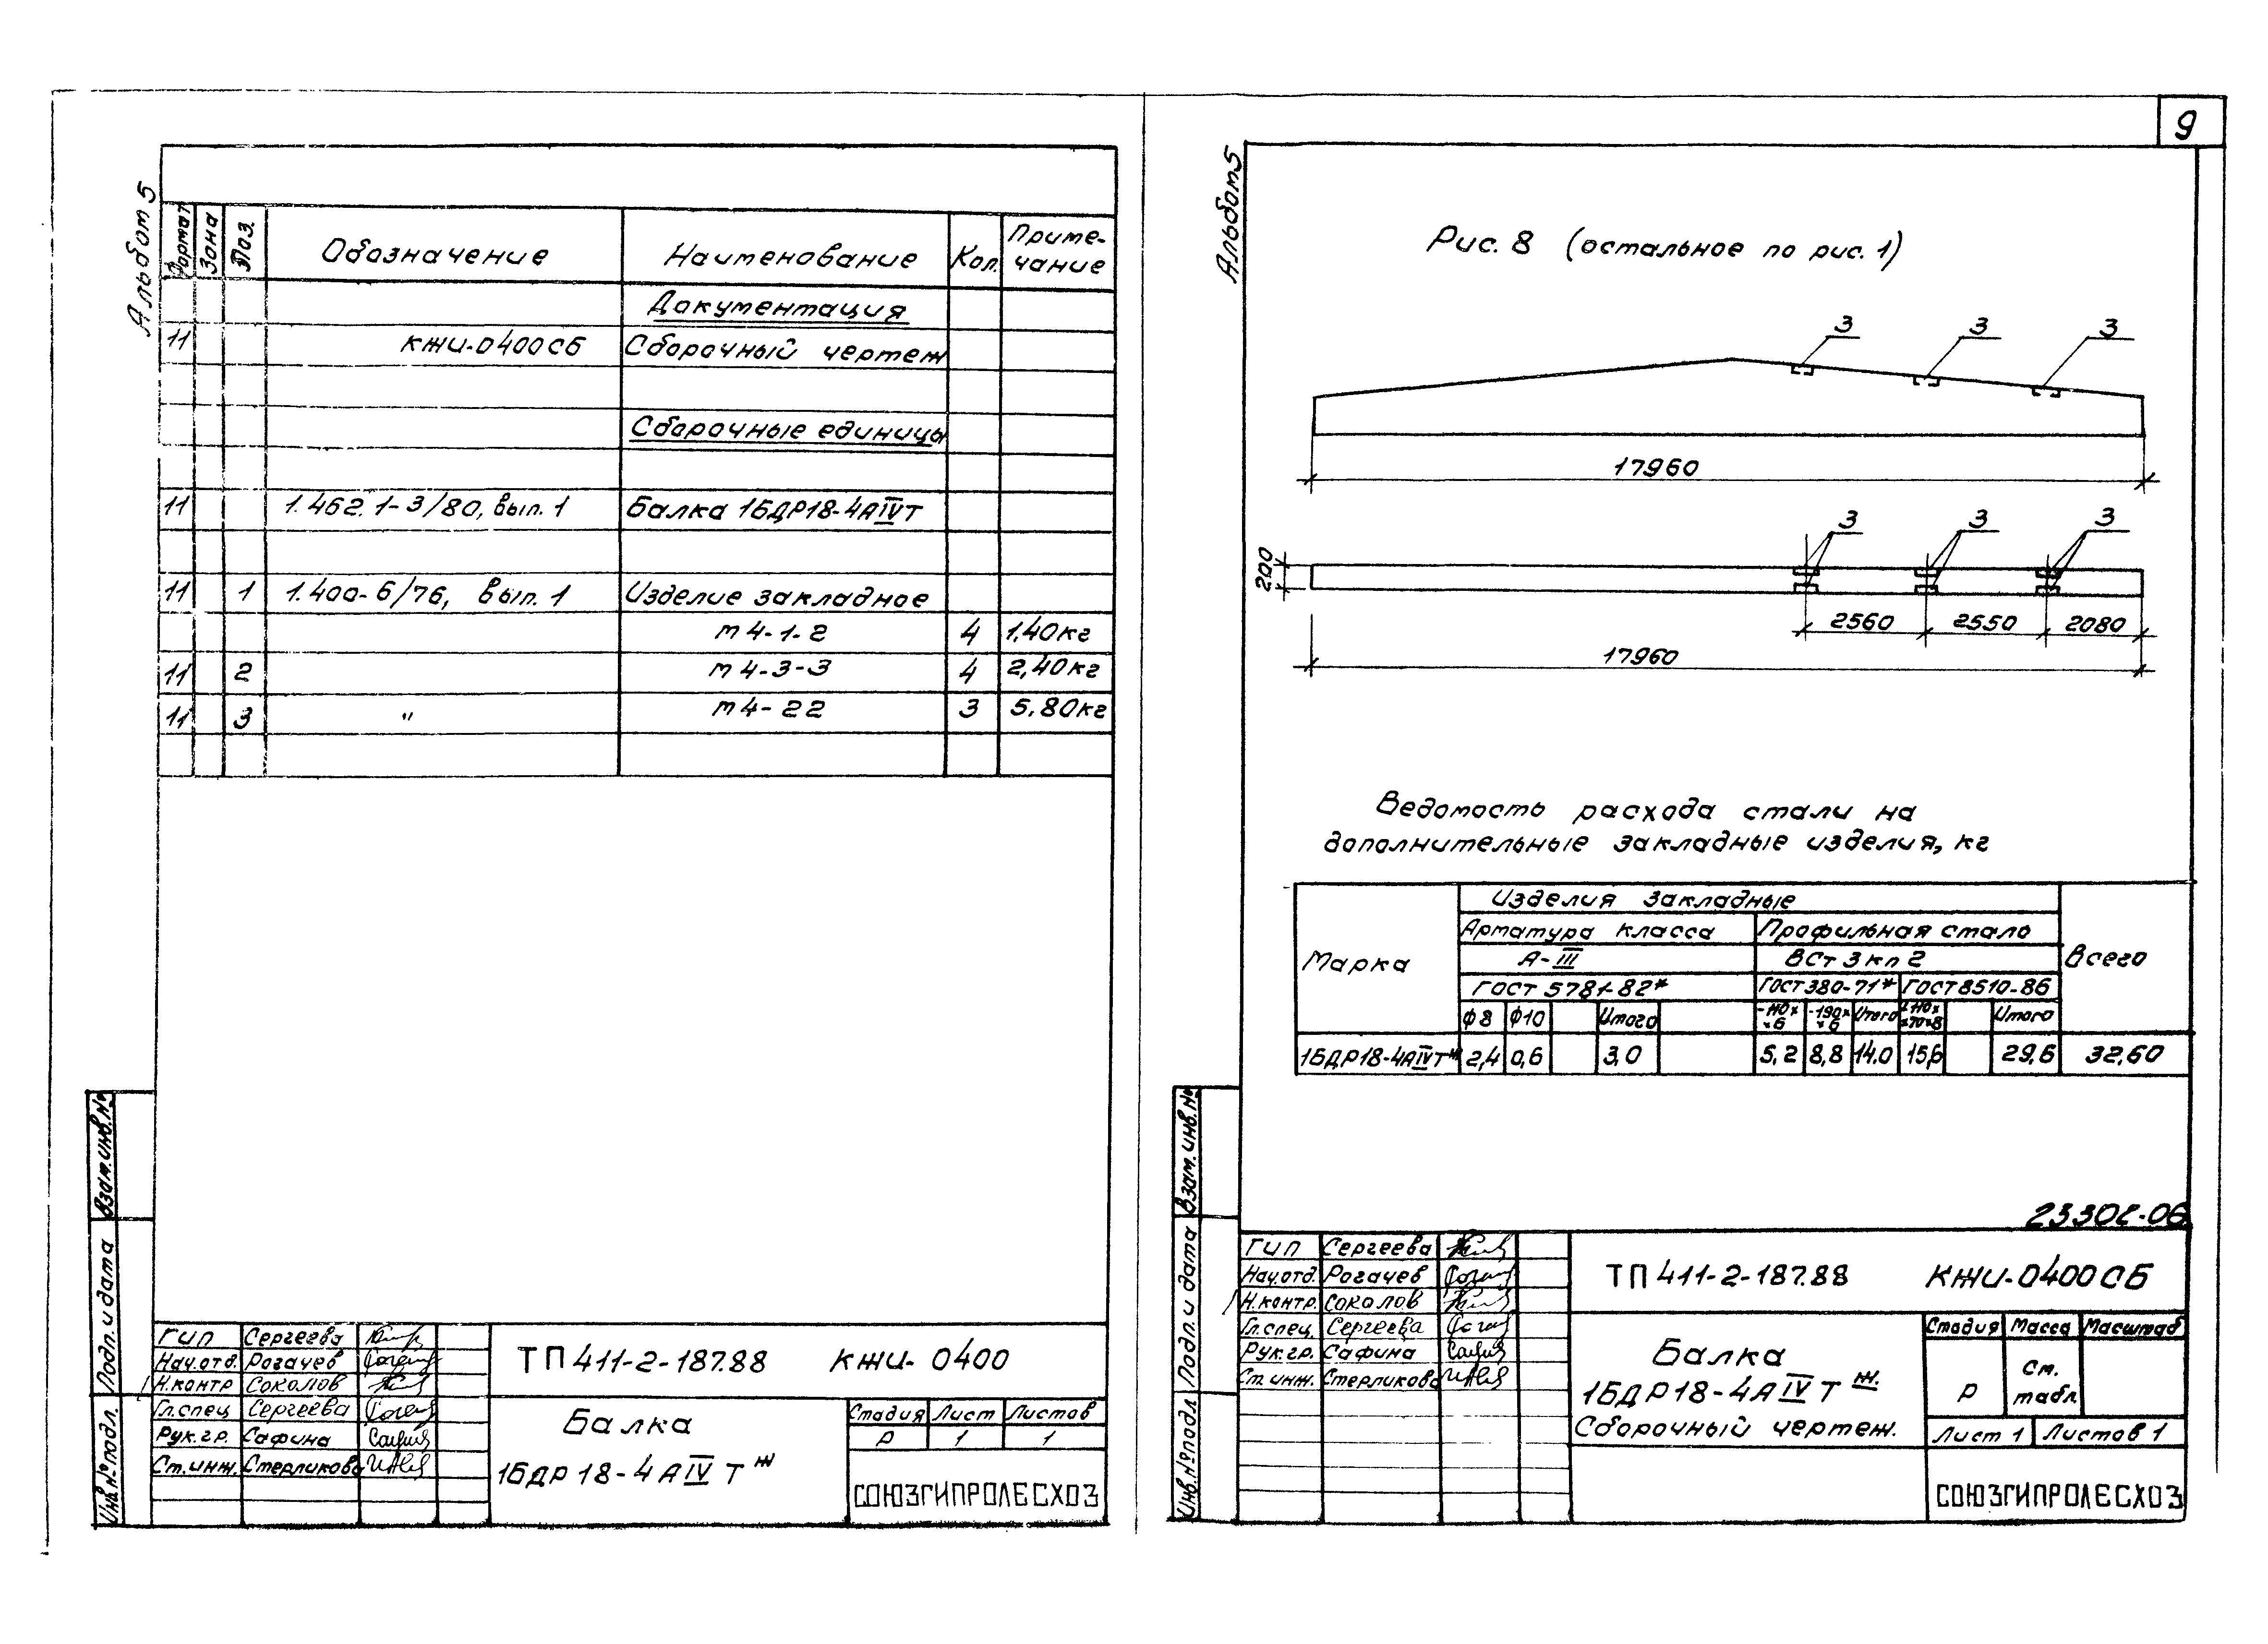 9
Альбом 5
Формат Зона Поз. Обозначение Наименование Кол. Приме-
чание
Документация
11 КЖИ-0400СБ Сборочный чертеж
Сборочные единицы
11 1.462.1-3/80, вып. 1 Балка 1БДР18-4АIVТ
11 1 1.400-6/76, вып. 1 Изделие закладное
м4-1-2 4 1,40кг
11 2 м4-3-3 4 2,40кг
11 3 " м4-22 3 5,80кг
Взам.инв.№
Подп. и дата
Инв.№подл.
ГИП Сергеева
Нач.отд. Рогачев
Н.контр Соколов
Гл.спец Сергеева
Рук.гр. Сафина
Ст.инж. Стерликова
ТП 411-2-187.88 КЖИ-0400
Балка
1БДР18-4АIVТ ж
Стадия Лист Листов
Р 1 1
СОЮЗГИПРОЛЕСХОЗ
Альбом 5
Рис. 8 (остальное по рис. 1)
3 3 3
17960
3 3 3
200
2560 2550 2080
17960
Ведомость расхода стали на
дополнительные закладные изделия, кг
Марка Изделия закладные Всего
Арматура класса Профильная сталь
А-III ВСт 3 кп 2
ГОСТ 5781-82* ГОСТ380-71* ГОСТ8510-86
Ф8 Ф10 Итого -110х
х6 -190х
х6 Итого L110х
х70х8 Итого
1БДР18-4АIVТж 2,4 0,6 3,0 5,2 8,8 14.0 15,6 29,6 32,60
Взам.инв.№
Подп. и дата
Инв.№подл
ГИП Сергеева
Нач.отд. Рогачев
Н.контр. Соколов
Гл.спец. Сергеева
Рук.гр. Сафина
Ст.инж. Стерликова
ТП 411-2-187.88 КЖИ-0400СБ
Балка
1БДР18-4АIVТ ж.
Сборочный чертеж.
Стадия Масса Масштаб
Р См.
табл.
Лист 1 Листов 1
СОЮЗГИПРОЛЕСХОЗ